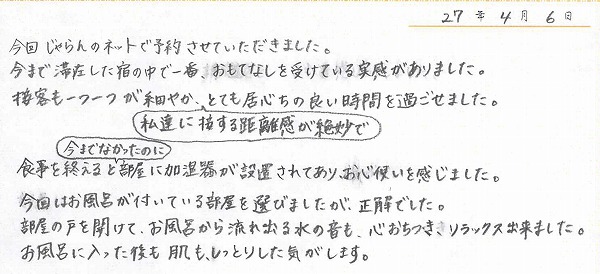 27年4月6日
今回じゃらんのネットで予約させていただきました。
今まで滞在した宿の中で一番、おもてなしを受けている実感がありました。
接客も一つ一つが細やか、とても居心ちの良い時間を過ごせました。
私達に接する距離感が絶妙で
今までなかったのに
食事を終えると部屋に加湿器が設置されてあり、お心使いを感じました。
今回はお風呂が付いている部屋を選びましたが、正解でした。
部屋の戸を開けて、お風呂から流れ出る水の音も、心おちつき、リラックス出来ました。
お風呂に入った後も肌も、しっとりした気がします。